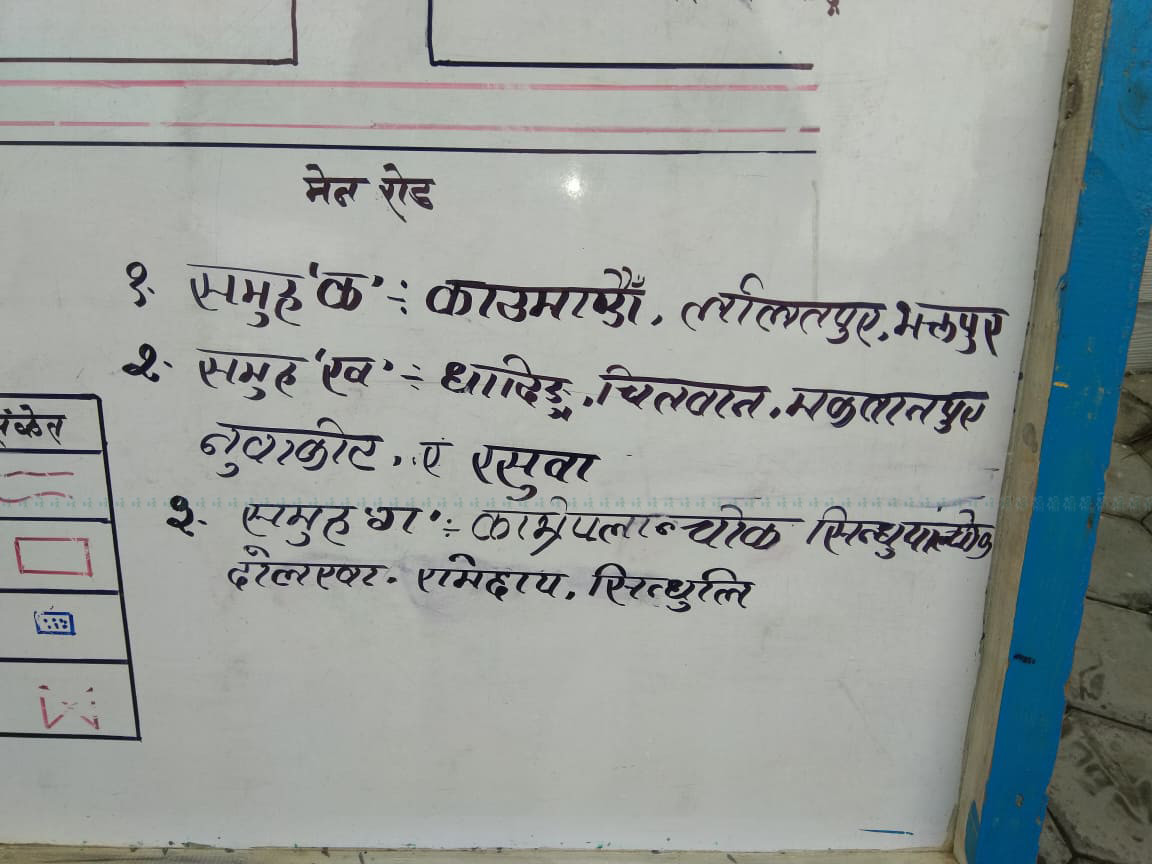 मेन रोड
१. समुह 'क' ÷ काठमाण्डौँ, ललितपुर, भक्तपुर
२. समुह 'ख' ÷ धादिङ्ग, चितवान, मकवानपुर
नुवाकोट, एं रसुवा
संकेत
३. समुह 'ग' ÷ काभ्रेपलान्चोक सिन्धुपाल्चोक
दोलखा. रामेछाप, सिन्धुलि